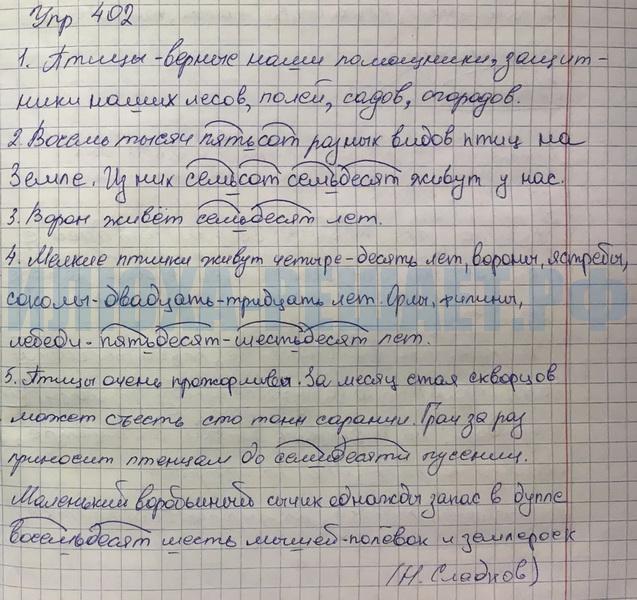 Упр 402
1. Птицы - верные наши помощники, защит-
ники наших лесов, полей, садов, огородов.
2. Восемь тысяч пятьсот разных видов птиц на
Земле. Из них семьсот семьдесят живут у нас.
3. Ворон живёт семьдесят лет.
4. Мелкие птички живут четыре-десять лет, вороны, ястребы,
соколы - двадцать-тридцать лет. Орлы, филины,
лебеди - пятьдесят-шестьдесят лет.
5. Птицы очень прожорливы. За месяц стая скворцов
может съесть сто тонн саранчи. Грач за раз
приносит птенцам до семидесяти гусениц.
Маленький воробьиный сычик однажды запас в дупле
восемьдесят шесть мышей-полёвок и землероек
(Н. Сладков)